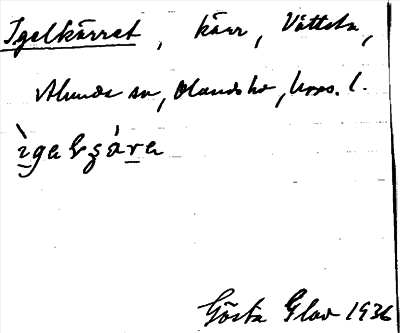 Igelkärret, kärr, Vättsta,
Alunda sn, Olands hd, Upps. l.
Gösta Glav 1936